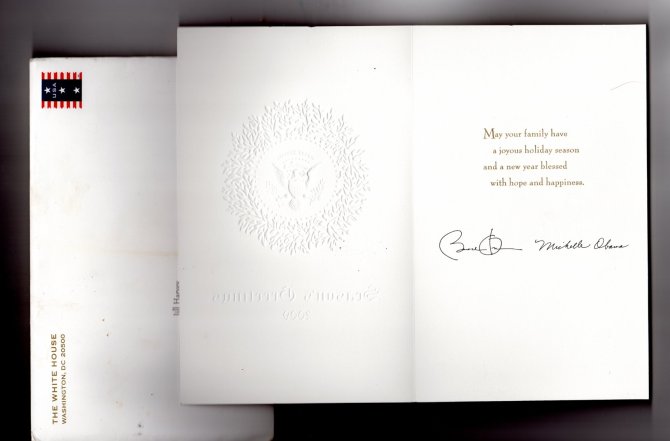 USA
THE WHITE HOUSE
WASHINGTON, DC 20500
Season's Greetings
2009
May your family have
a joyous holiday season
and a new year blessed
with hope and happiness.
Michelle Obama